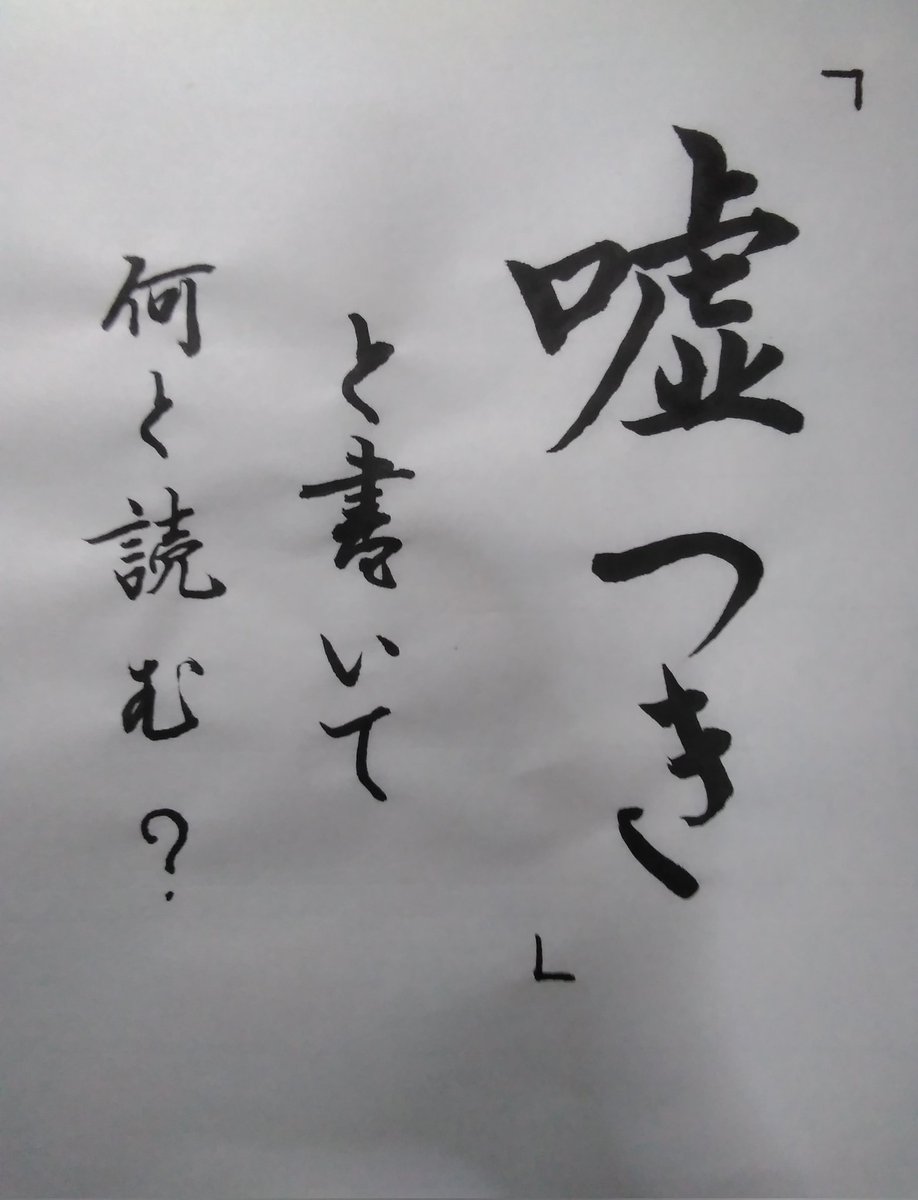 「嘘つき」
と書いて
何と読む?